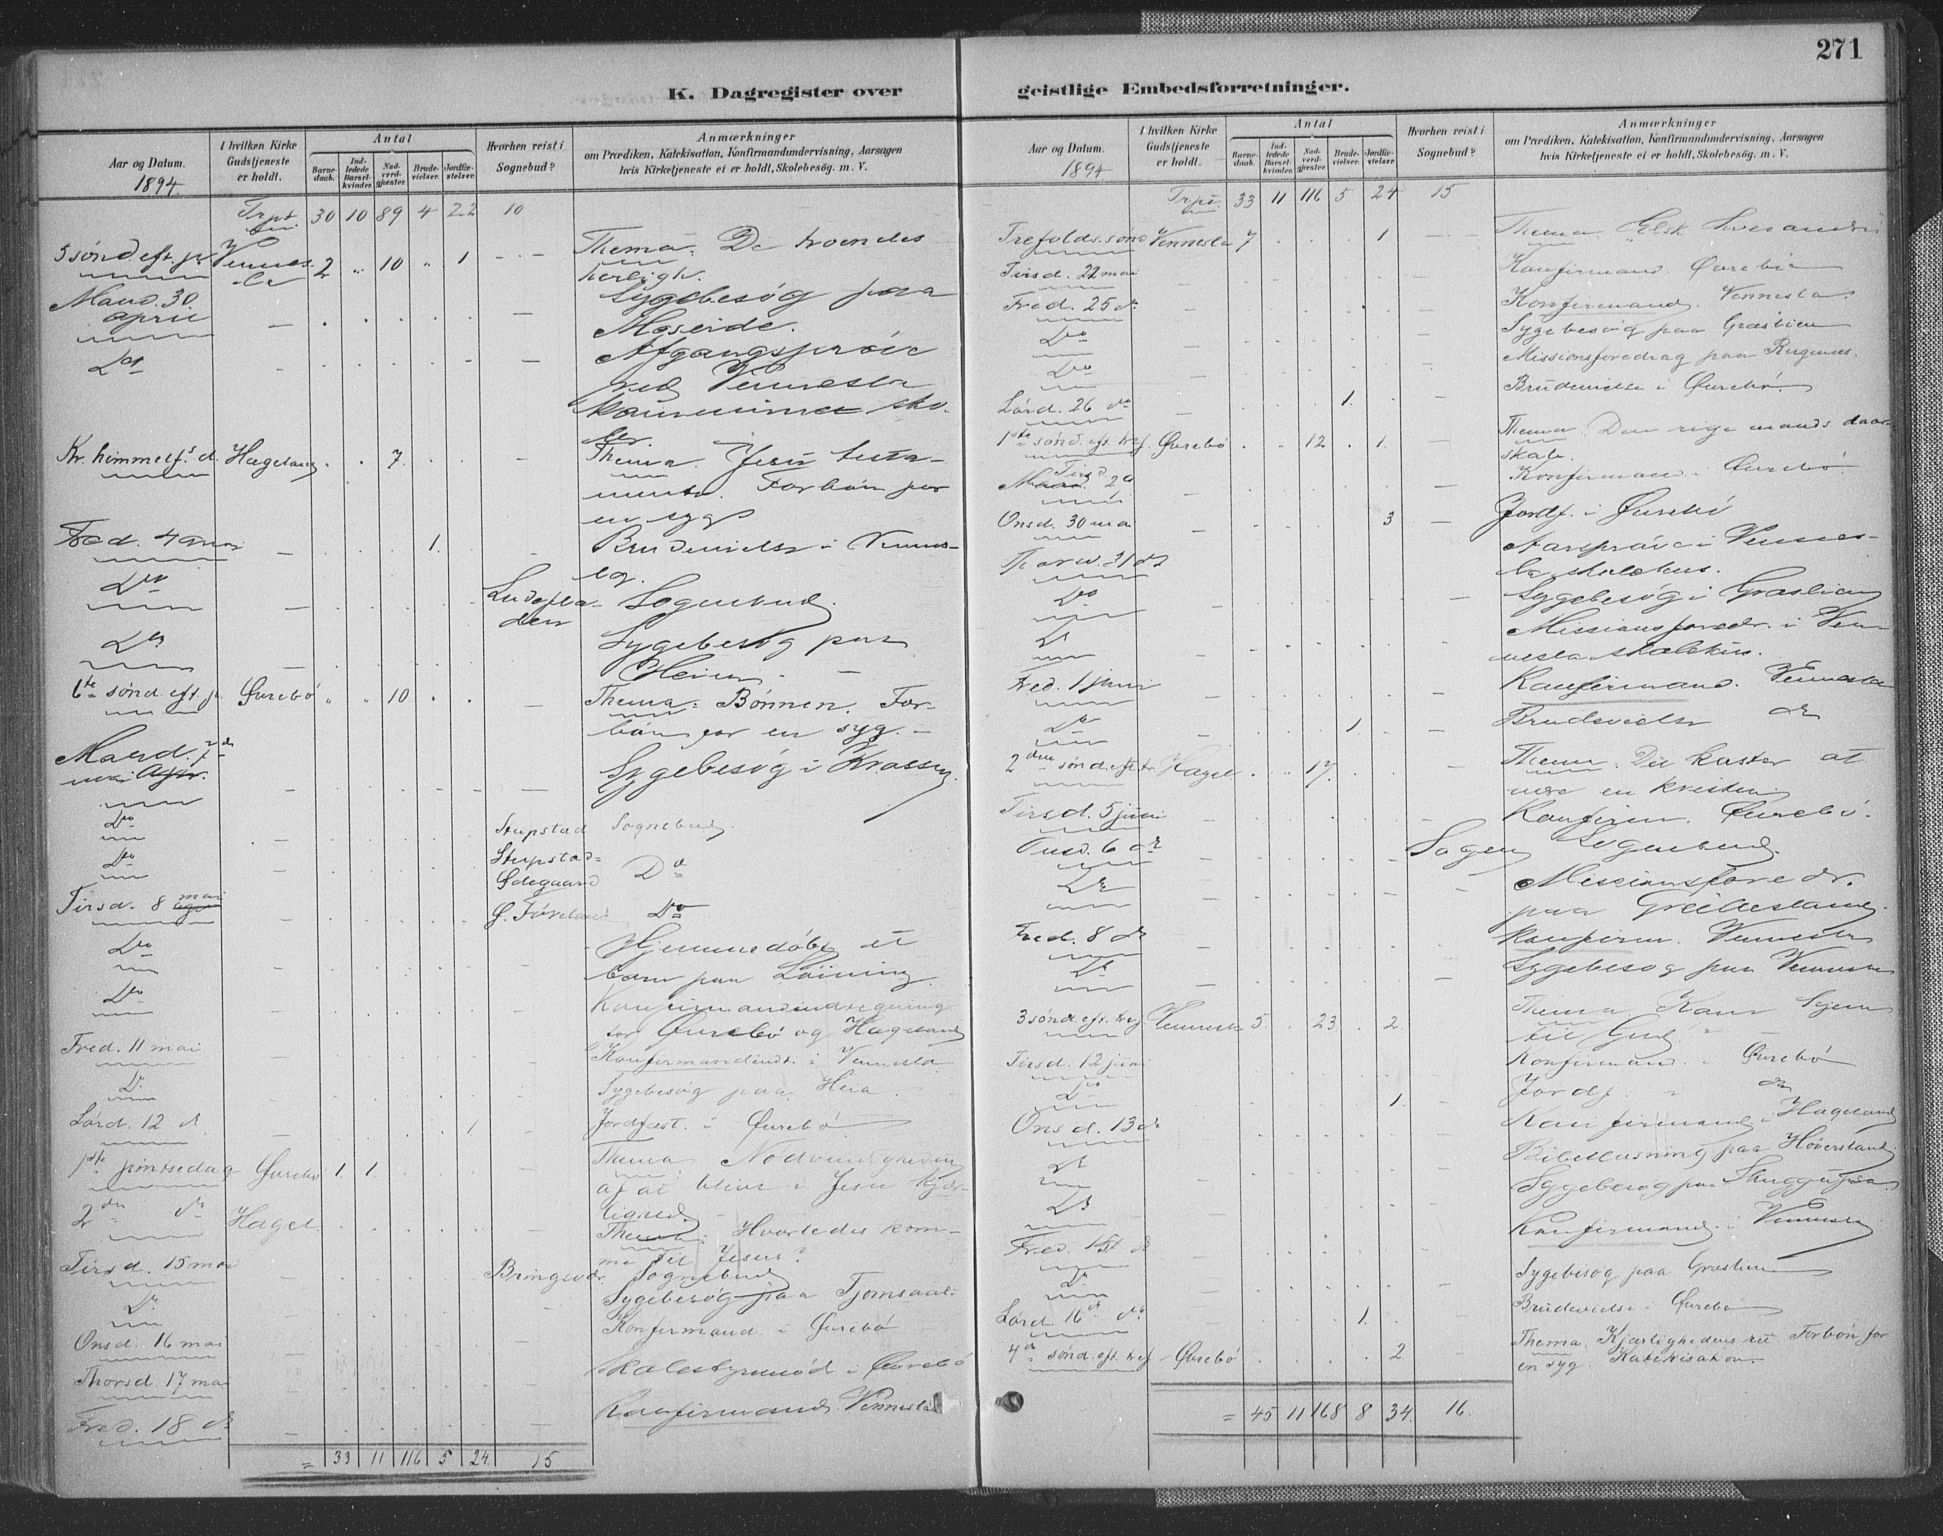 271
K. Dagregister over
Aar og Datum.
1894.
I hvilken Kirke Gudstjeneste er holdt.
Antal
Barnedaab.
Indledede Barselkvinder.
Nadverdgjester.
Brudevielser.
Jordfæstelser.
Hvorhen reist i Sognebud?
Anmærkninger
om Prædiken, Katekisation, Konfirmandundervisning, Aarsagen
hvis Kirketjeneste ei er holdt, Skolebesøg. m. V.
Trpt 30 10 89 4 22 10
5 sønd. eft. p. Vennesla 2 " 10 " 1 — Thema: De troendes
herligh.
Mand. 30 april — Sygebesøg paa
Moseide.
Do — Afgangsprøve
ved Vennesla
kommunes sko-
ler.
Kr. himmelf.s d. Hægeland 7. Thema. Jesu testa-
mente. Forbøn for
en syg
Fred. 4 mai — 1. Brudevielse i Vennes-
la.
Do — Sognebud.
Do — Sygebesøg paa
Heim
6te sønd. eft. p. Øvrebø " " 10 — Thema: Bønnen. For-
bøn for en syg.
Mand. 7de mai — Sygebesøg i Krassen
Do — Stupstad Sognebud.
Do — Stupstad-
Ødegaard Do
Tirsd. 8 mai Ø. Føreland Do
Do Hjemmedøbt et
barn paa Løining
Do — Konfirmandindtegning
for Øvrebø og Hægeland
Fred. 11 mai — Konfirmandindt. i Vennesla
Do Sygebesøg paa Heia
Lørd. 12 d — 1 Jordfæst. i Øvrebø
1ste pintsedag Øvrebø 1 1 Thema Nødvendigheden
af at blive i Jesu kjær-
lighed.
2den do Hægel. Thema: Hvorledes kom-
me til Jesus?
Tirsd. 15 mai — Bringsvær Sognebud
Do — Sygebesøg paa Tjomsaal.
Onsd. 16 mai — Konfirmand. i Øvrebø
Thorsd. 17 mai — Skolestyremød i Øvrebø
Fred. 18 do — Konfirmand. Vennesla
= 33 11 116 5 24 15
geistlige Embedsforretninger.
Aar og Datum.
1894
I hvilken Kirke Gudstjeneste er holdt.
Antal
Barnedaab.
Indledede Barselkvinder.
Nadverdgjester.
Brudevielser.
Jordfæstelser.
Hvorhen reist i Sognebud?
Anmærkninger
om Prædiken, Katekisation, Konfirmandundervisning, Aarsagen
hvis Kirketjeneste ei er holdt, Skolebesøg. m. V.
Trpt. 33 11 116 5 24 15
Trefolds. sønd Vennesla 7 1 — Thema "Elsk hverandre"
Tirsd. 22 mai — Konfirmand. Øvrebø
Fred. 25 do — Konfirmand. Vennesla.
Do — Sygebesøg paa Græslien
Do — Missionsforedrag paa Rugenes.
Lørd. 26 do — 1. — Brudevielse i Øvrebø
1ste sønd. eft. tref. Øvrebø 12 1. Thema: Den rige mands daar-
skab.
Tirsd. 29 mai — Konfirmand i Øvrebø
Onsd. 30 mai — 3 — Jordf. i Øvrebø
Thorsd. 31 do — Aarsprøve i Vennes-
la skolehus.
Do — Sygebesøg i Græslien
Do Missionsforedr. i Ven-
nesla skolehus.
Fred. 1 juni — Konfirmand. Vennesla
Do — 1 Brudevielse do
2den sønd. eft. tr. Hægel. 17 Thema: Det koster at
være en kristen
Tirsd. 5 juni Konfirm. Øvrebø.
Onsd. 6 do — Sognebud.
Do — Missionsforedr.
paa Greibesland
Fred. 8 do — Konfirm. Vennesla
Do — Sygebesøg paa Vennesla
3 sønd. eft. tref. Vennesla 5. 23. 2. Thema Kom igjen
til Gud!
Tirsd. 12 juni — Konfirmand. i Øvrebø
Do — 1. Jordf. do
Onsd. 13 do Konfirmand i Hægeland
Do Bibellæsning paa Høverstand
Do Sygebesøg paa
Fred. 15 do — Konfirmand. i Vennesla
Do — Sygebesøg paa Græslien
Lørd. 16 do — 1. — Brudevielse i Øvrebø
4de sønd. eft. tref. Øvrebø 2 Thema. Kjærlighedens ret. Forbøn for
en syg. Katekisation
= 45 11 168 8 34. 16.